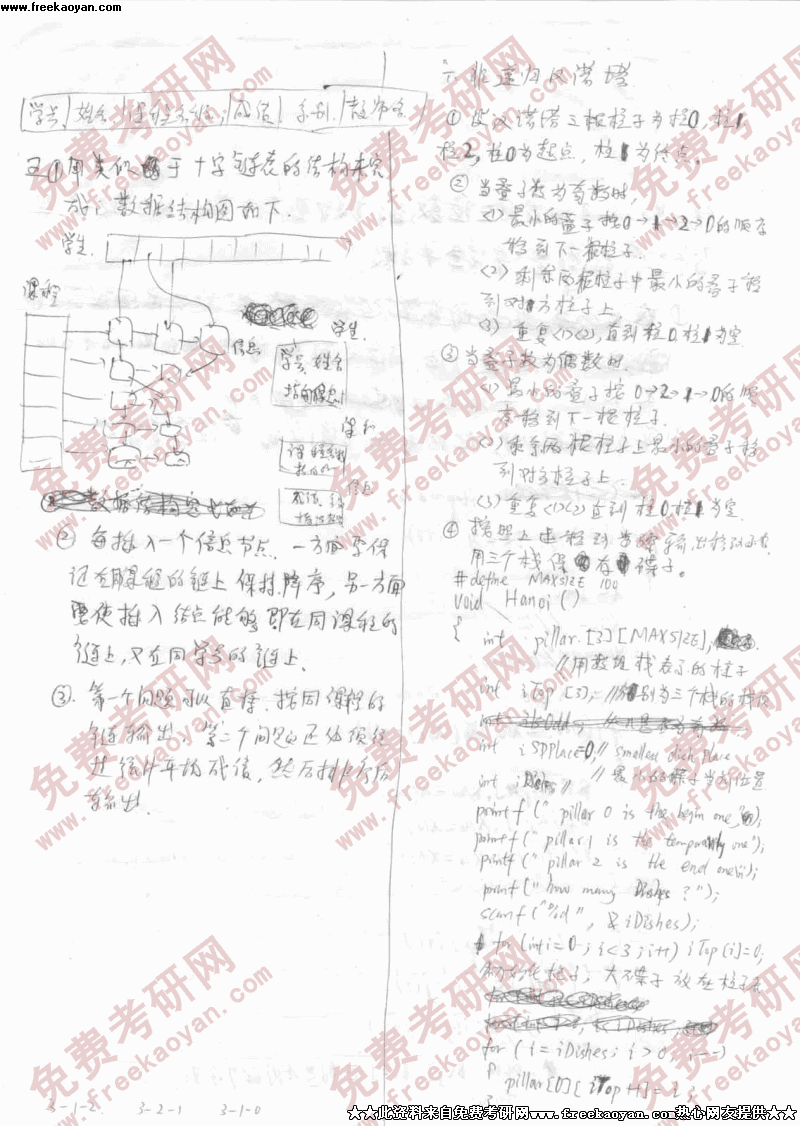 www.freekaoyan.com
学号 姓名 课程名称 成绩 系别 教师名
五①用类似于十字链表的结构来完
成,数据结构图如下.
学生
课程
信息
学生.
学号, 姓名
课程
信息
② 每插入一个信息节点. 一方面要保
证在课程的链上保持降序, 另一方面
要使插入结点能够即在同课程的
链上, 又在同学号的链上.
③. 第一个问题可以直接按同课程的
链输出, 第二个问题还必须经
过统计平均成绩, 然后排序后
输出.
3-1-2 3-2-1 3-1-0
六 非递归汉诺塔
① 设汉诺塔三根柱子为柱0, 柱1,
柱2, 柱0为起点, 柱1为终点.
② 当盘子数为奇数时,
<1> 最小的盘子按0→1→2→0的顺序
移到下一根柱子.
(2) 剩余两根柱子中最小的盘子移
到对方柱子上
(3) 重复<1>(2), 直到柱0, 柱1为空.
③ 当盘子数为偶数时.
<1> 最小的盘子按0→2→1→0的顺
序移到下一根柱子.
(2) 剩余两根柱子上最小的盘子移
到对方柱子上
(3) 重复<1>(2) 直到柱0, 柱1为空.
④ 按照上述
用三个栈保存碟子。
#define MAXSIZE 100
void Hanoi ()
{ int pillar [3][MAXSIZE],
//用数组栈表示的柱子
int iTop [3]; //分别为三个栈的栈顶
int iSDPlace=0; // smallest dish place
// 最小的碟子当前位置
int iDishes //
printf (" pillar 0 is the begin one, ");
printf (" pillar 1 is the temporarily one");
printf (" pillar 2 is the end one\n");
printf ("how many Dishes ? ");
scanf ("%d", &iDishes);
for (int i=0; i<3; i++) iTop [i]=0;
初始化柱子, 大碟子放在柱子底
for (i = iDishes; i > 0; i--)
pillar[0][iTop ++] = i;
★★此资料来自免费考研网www.freekaoyan.com热心网友提供★★
免费考研网
www.freekaoyan.com